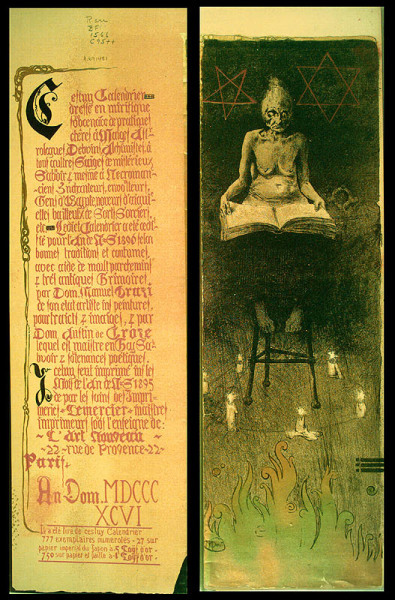 1561
Cestuy Calendrier
dressé en mirifique
de pratiques
chères à Mages, As-
trologues, Devins, Alchymistes, &
tous aultres Suiges de mistérieux
Sabbats & mesme à Necroman-
ciens, Enchanteurs, envolteurs,
Gens d'Egypte, noueurs d'esguil-
lettes, bailleurs de Sorts, Sorciers,
etc — Ledict Calendrier a esté æedi-
té pour l'An de N-S 1896 selon
bonnes traditions et coutumes,
avec aide de moult parchemins
& très antiques Grimoires,
par Dom. Manuel Orazi
de son estat artiste ins peintures,
pourtraicts & imaiges, & par
Dom Austin de Croze
lequel est maistre en Gay Sa-
voir & sciences poétiques.
Icelui feut imprimé ins les
Mois de l'An de N-S 1895
de par les soins des Impri-
meries Lemercier - maistre
imprimeur sous l'enseigne de:
~ L'Art Nouveau ~
~ 22 - rue de Provence - 22 ~
Paris
An Dom. MDCCC
XCVI
Il a été tiré de cestuy Calendrier
777 exemplaires numérotés - 27 sur
papier impérial du Japon à 5 d'or -
750 sur papier à d'or -